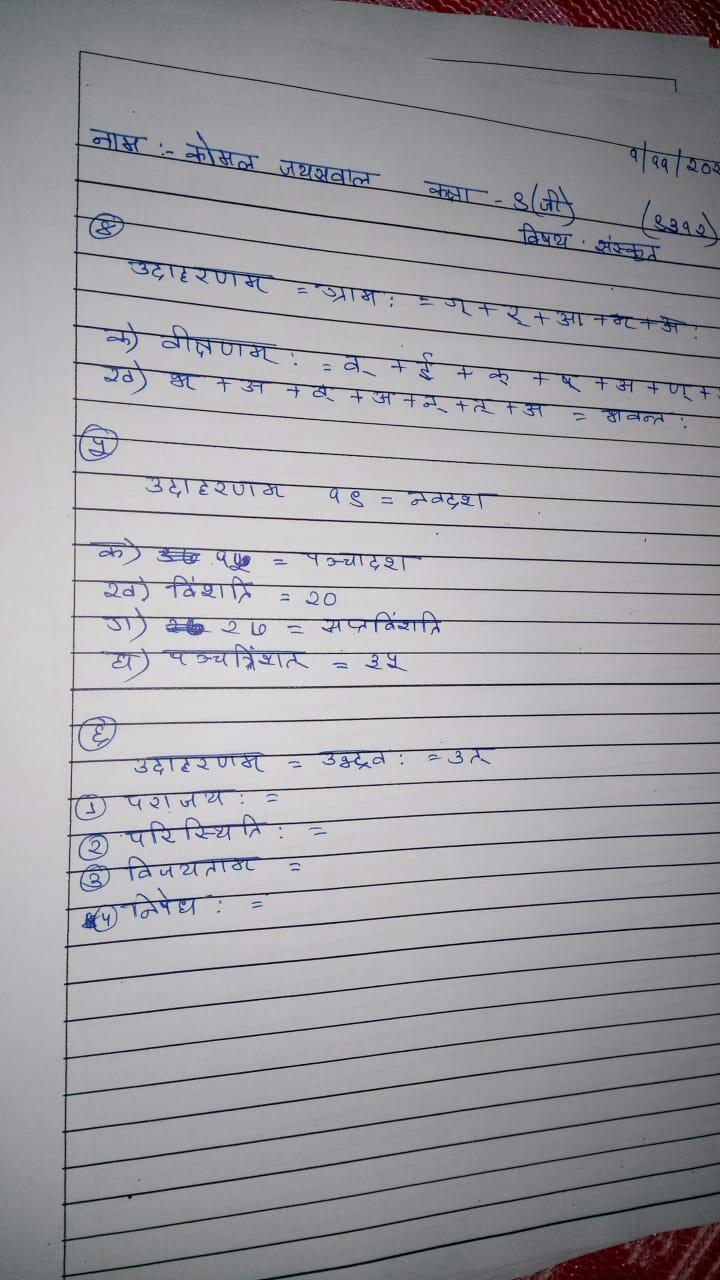 १/११/२०२
नाम :- कोमल जयसवाल कक्षा - ९(जी) (९३१२)
विषय : संस्कृत
४
उदाहरणम = ग्राम : = ग् + र् + आ + म + अ :
क) वीक्षणम : = व् + ई + क् + ष् + अ + ण् +
ख) भ + अ + व् + अ + न् + त् + अ = भवन्त :
५
उदाहरणम १९ = नवदश
क) १५ = पञ्चादश
ख) विंशति = २०
ग) २७ = सप्तविंशति
घ) पञ्चत्रिंशत = ३५
६
उदाहरणम = उद्भव : = उत्
1 पराजय : =
2 परिस्थिति : =
3 विजयताम =
५ निषेध : =